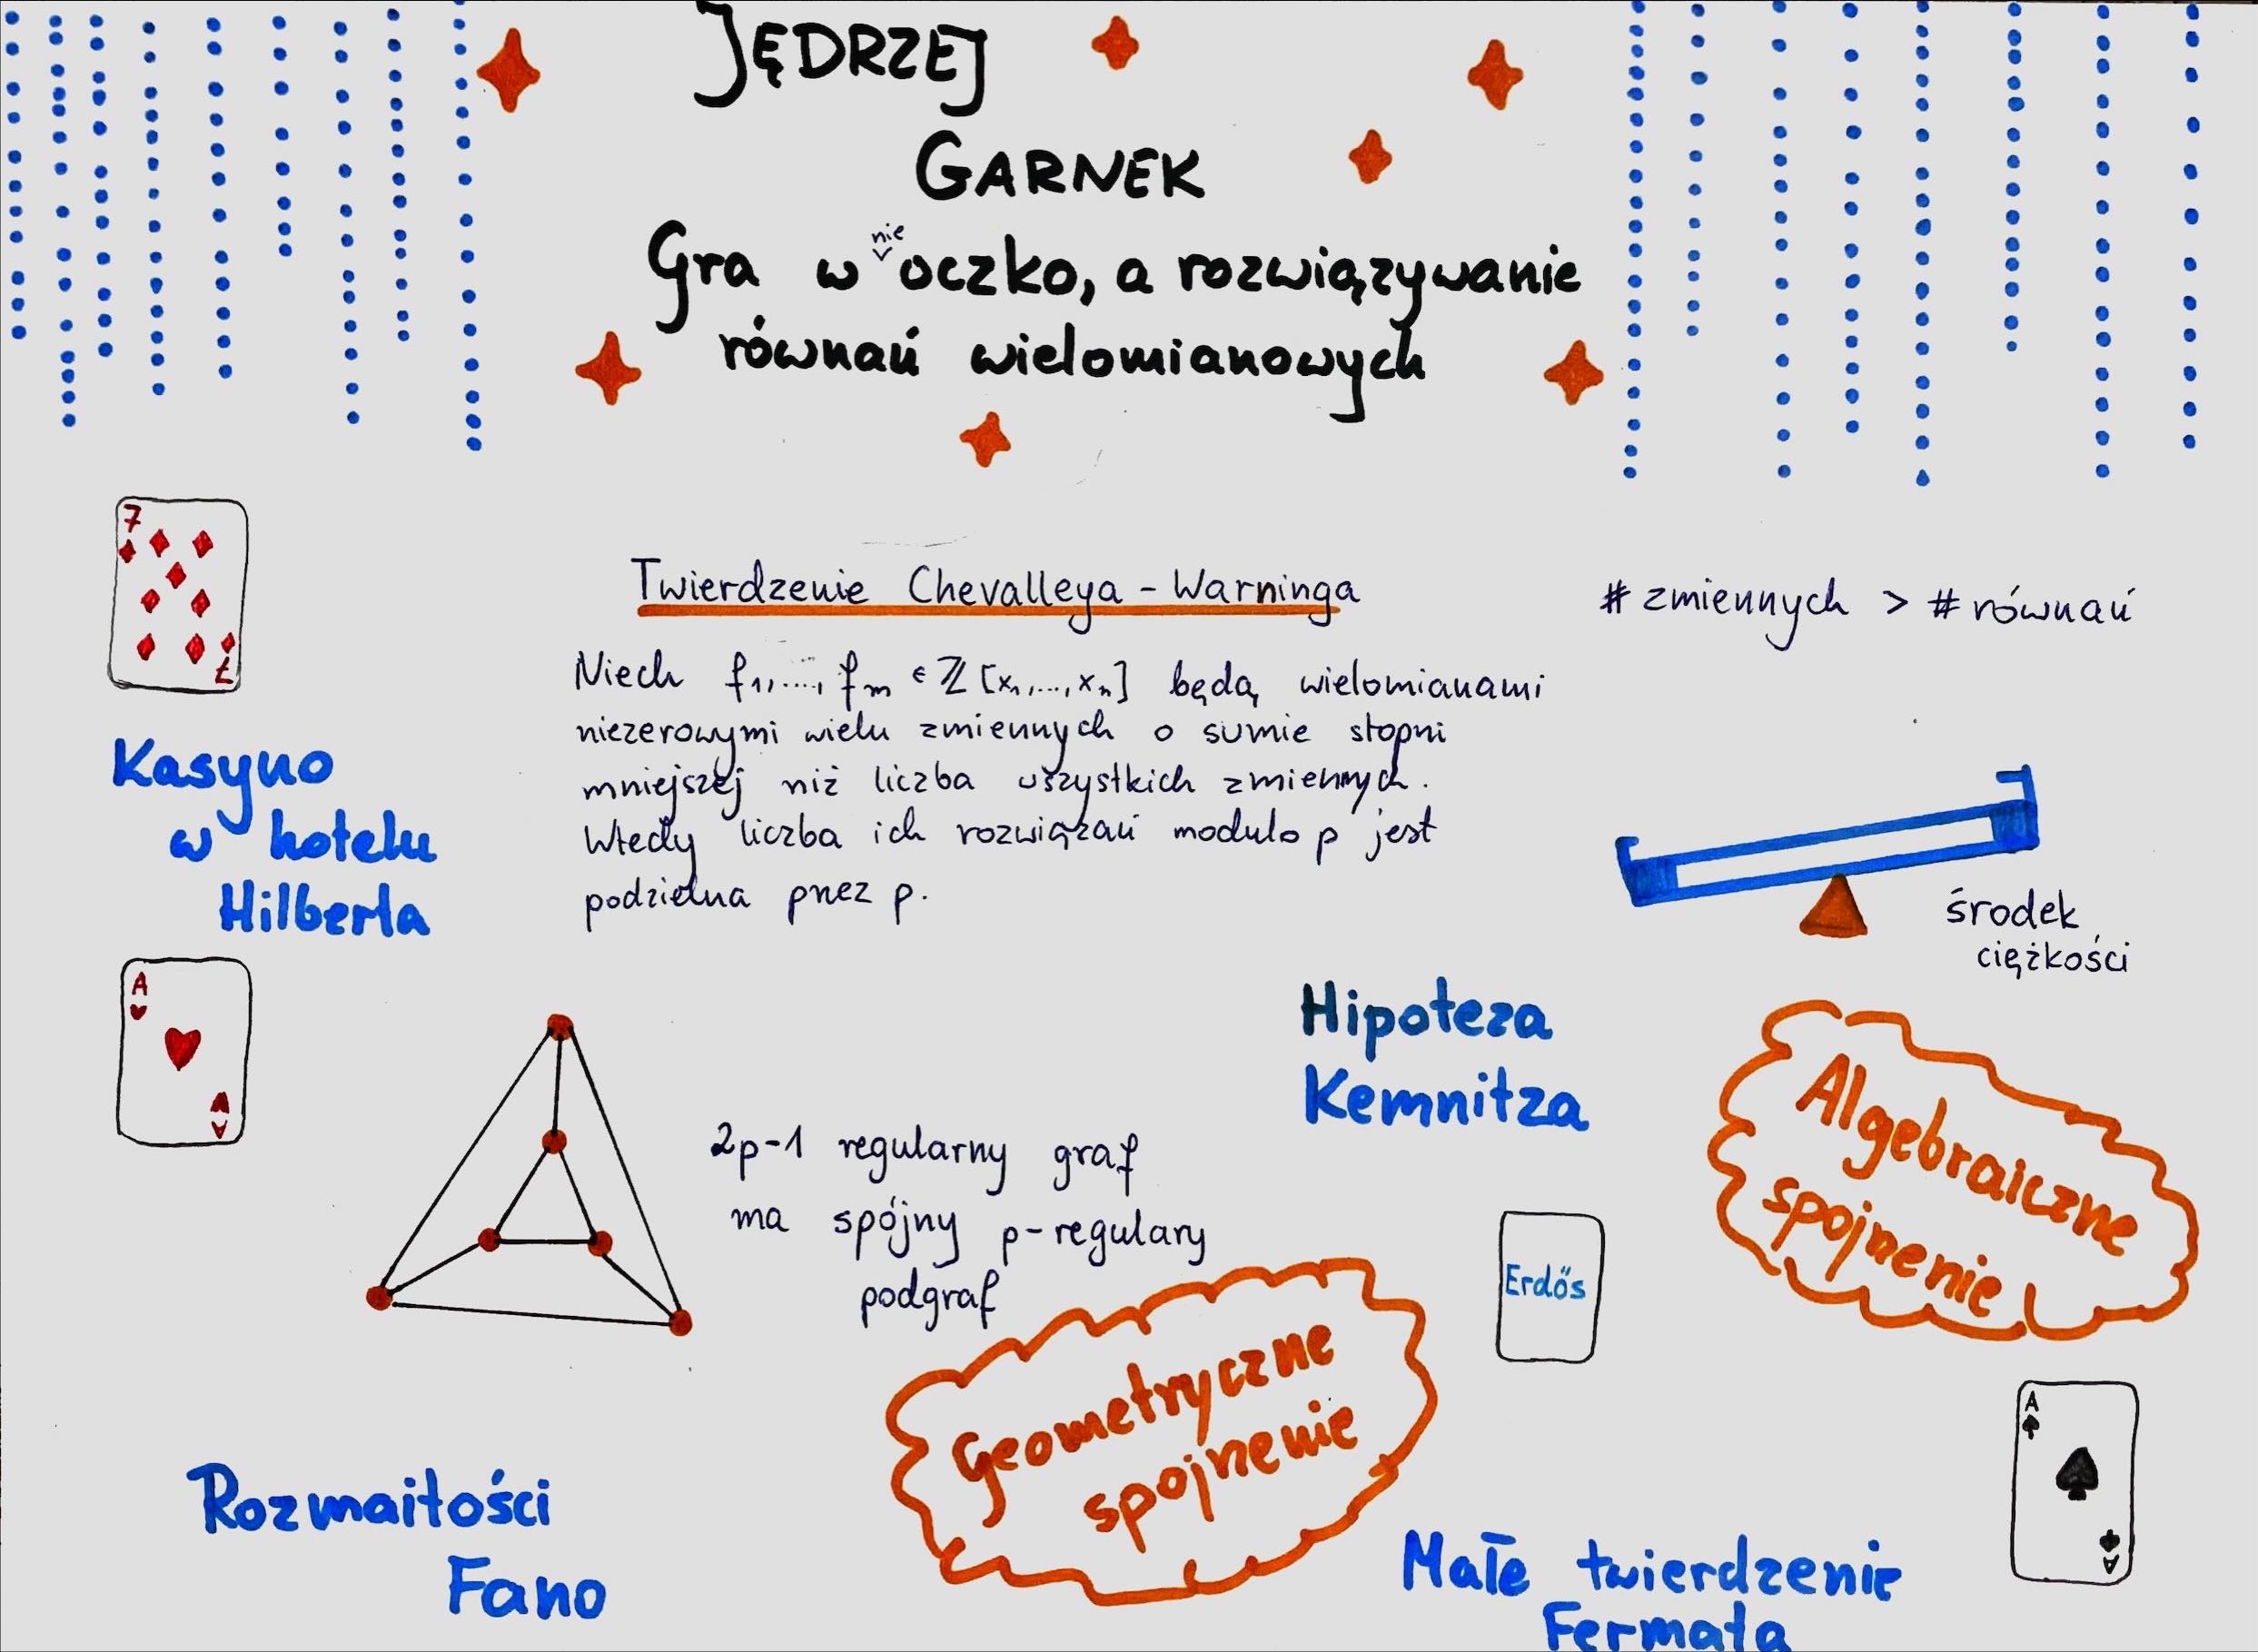 JĘDRZEJ
GARNEK
Gra w nie oczko, a rozwiązywanie
równań wielomianowych
7
7
Twierdzenie Chevalleya - Warninga
# zmiennych > # równań
Niech f1,..., fm ∈ ℤ [x1,...,xn] będą wielomianami
niezerowymi wielu zmiennych o sumie stopni
mniejszej niż liczba wszystkich zmiennych.
Wtedy liczba ich rozwiązań modulo p jest
podzielna przez p.
Kasyno
w hotelu
Hilberta
środek
ciężkości
A
A
Hipoteza
Kemnitza
Algebraiczne
spojrzenie
2p-1 regularny graf
ma spójny p-regulary
podgraf
Erdős
Geometryczne
spojrzenie
A
A
Rozmaitości
Fano
Małe twierdzenie
Fermata